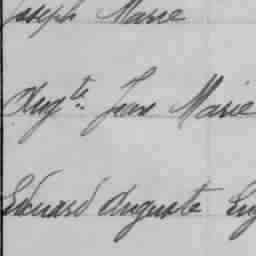 Joseph Marie
Aug^te Jean Marie
Edouard Auguste Eug